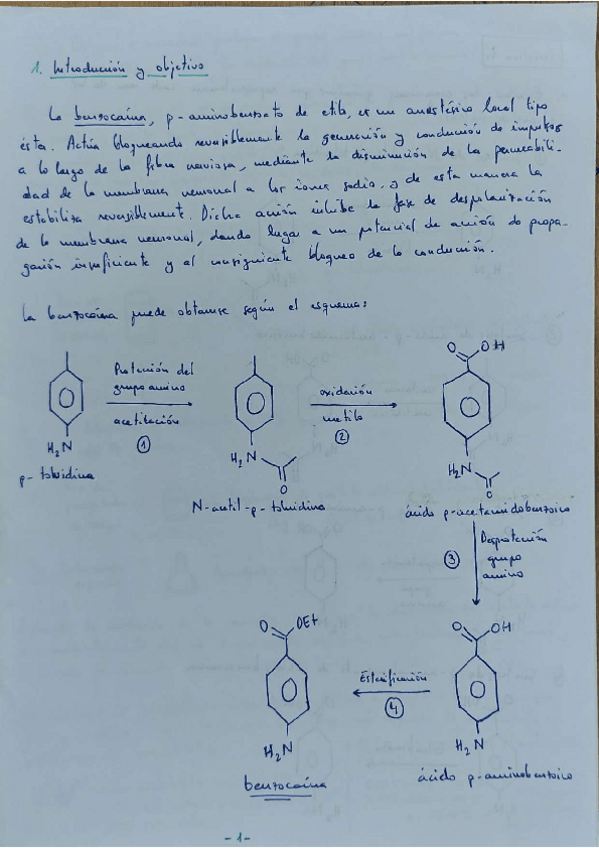 1. Introducción y objetivo
La benzocaína, p-aminobenzoato de etilo, es un anestésico local tipo
ésta. Actúa bloqueando reversiblemente la generación y conducción de impulsos
a lo largo de la fibra nerviosa, mediante la disminución de la permeabili-
dad de la membrana neuronal a los iones sodio, y de esta manera la
estabiliza reversiblemente. Dicha acción inhibe la fase de despolarización
de la membrana neuronal, dando lugar a un potencial de acción de propa-
gación insuficiente y al consiguiente bloqueo de la conducción.
La benzocaína puede obtenerse según el esquema:
Protección del
grupo amino
acetilación
1
H2N
p-toluidina
oxidación
metilo
2
H2N
O
N-acetil-p-toluidina
O OH
H2N
O
ácido p-acetamidobenzoico
3
Desprotección
grupo
amino
O OH
H2N
ácido p-aminobenzoico
Esterificación
4
O OEt
H2N
benzocaína
-1-